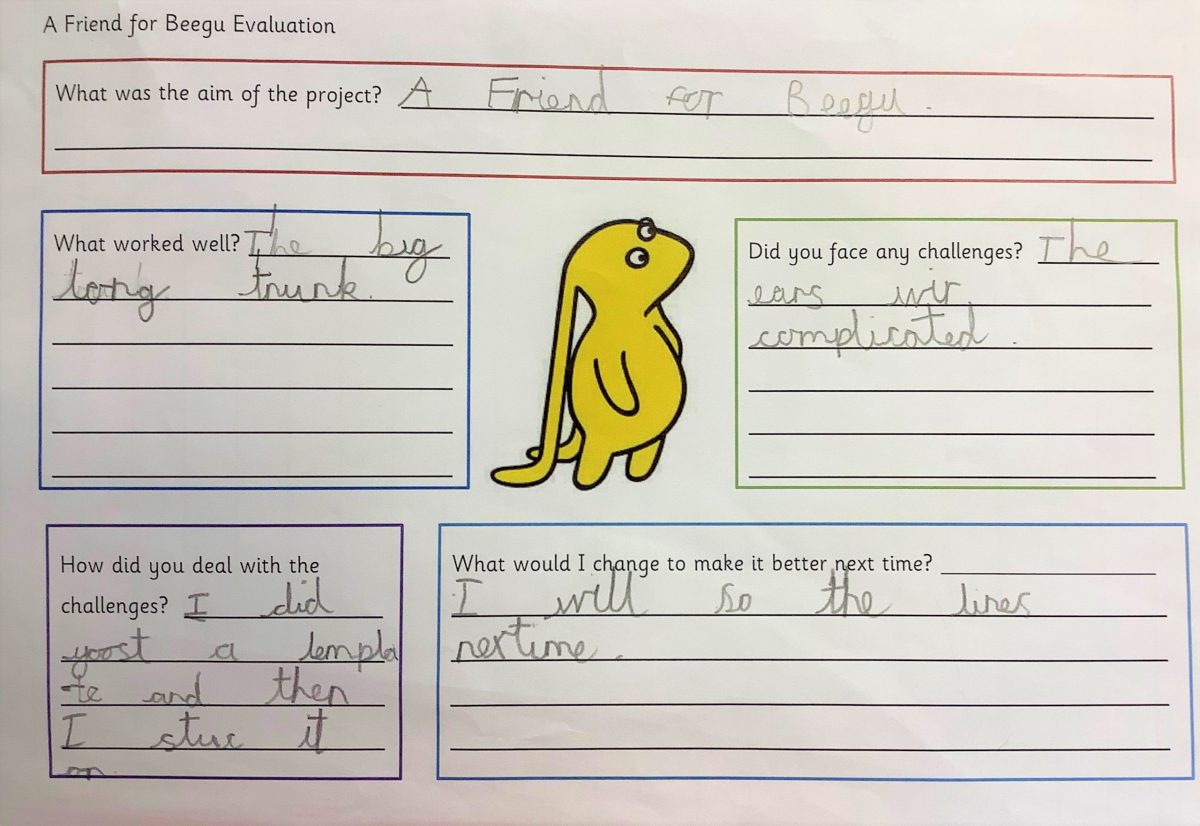 A Friend for Beegu Evaluation
What was the aim of the project? A Friend for Beegu.
What worked well? The big
long trunk.
Did you face any challenges? The
ears wir
complicated.
How did you deal with the
challenges? I did
yoost a templa
te and then
I stuc it
on.
What would I change to make it better next time?
I will so the lines
nextime.